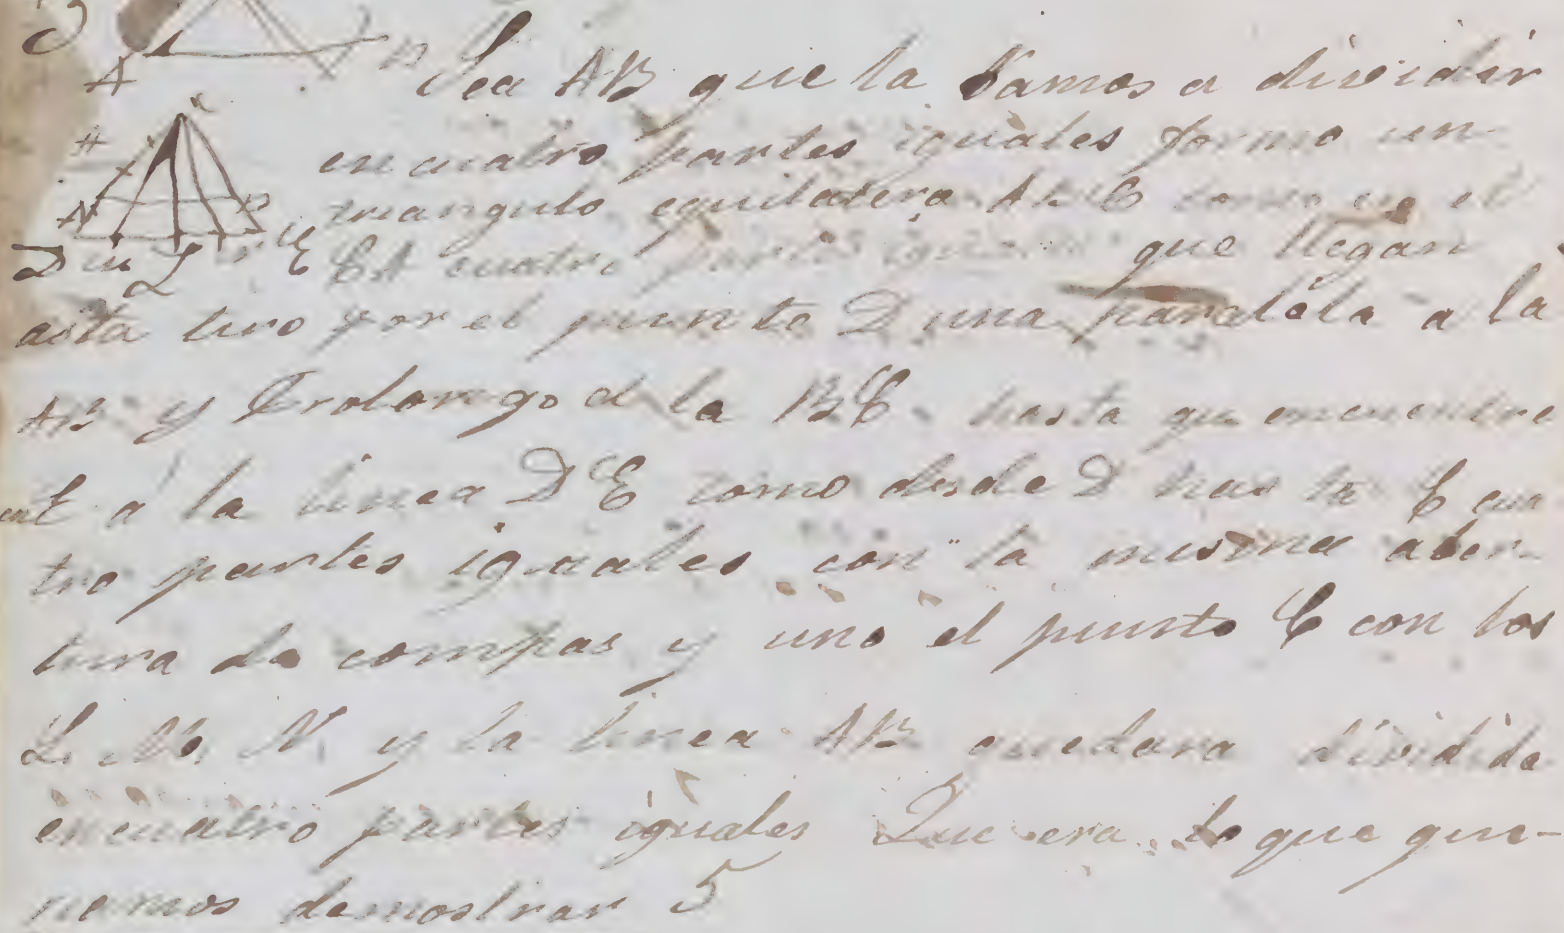 Sea AB que la Vamos a dividir
en cuatro partes iguales formo un
triangulo equilatero ABC como en el
CA cuatro partes iguales que llegan
asta tiro por el punto D una paralela a la
AB y Prolongo d la BC hasta que encuentre
a la linea DE como desde D has ta E cua
tro partes iguales con la misma aber-
tura de compas y uno el punto C con los
L. M. N. y la linea AB quedara dividida
en cuatro partes iguales Que era lo que que-
riamos demostrar 5